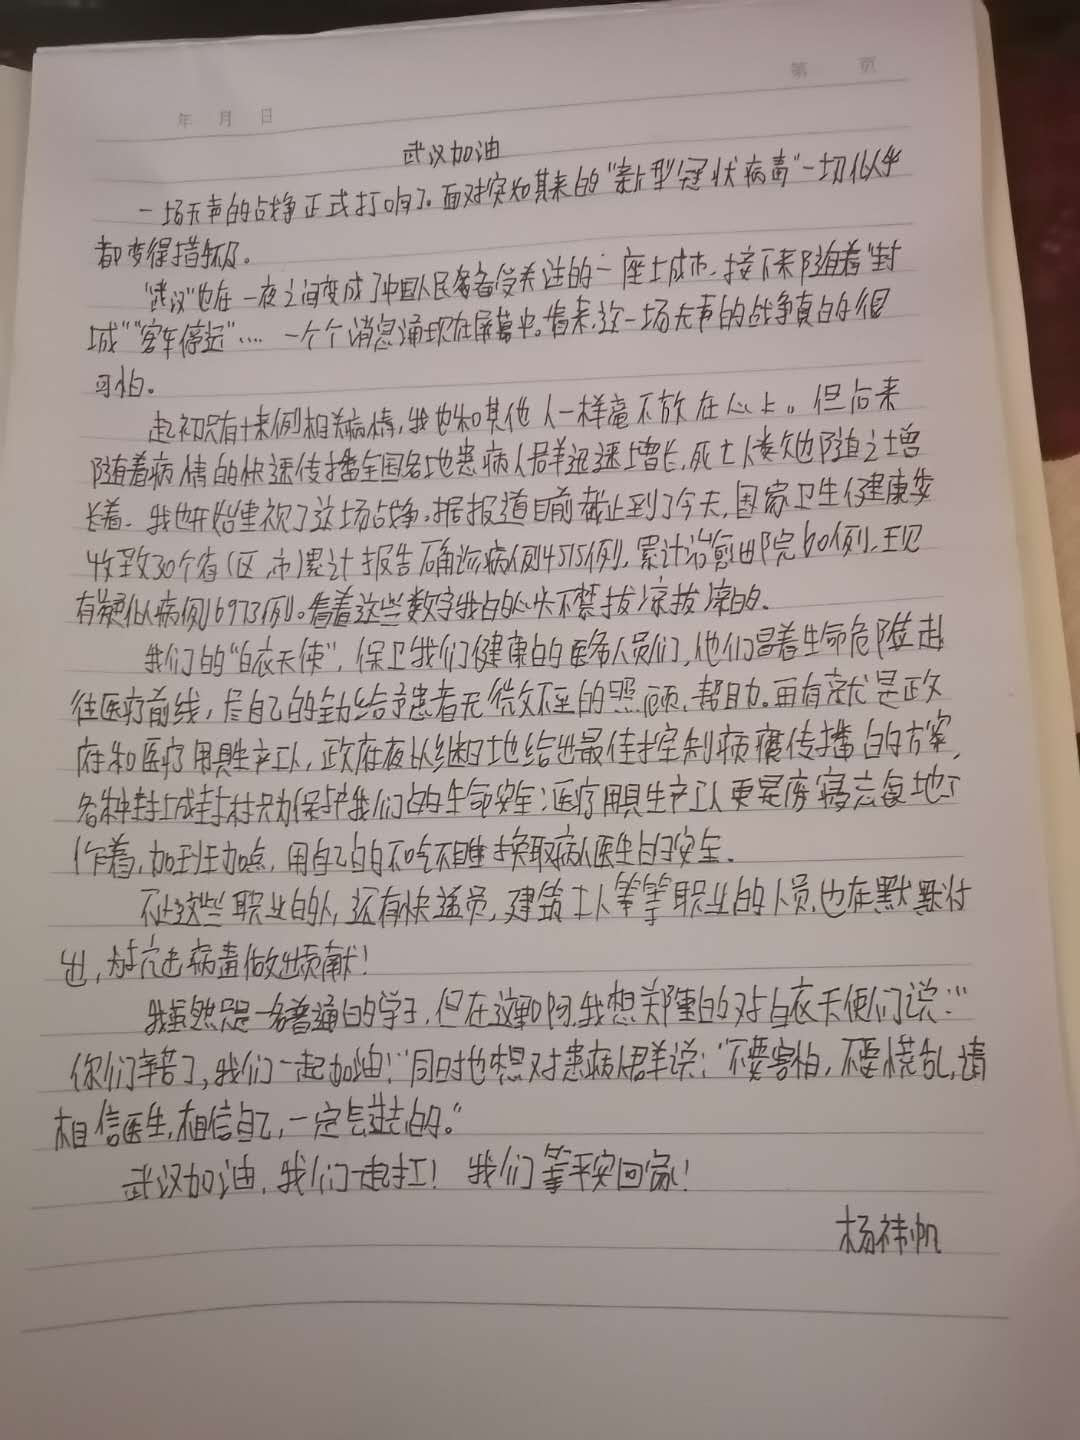 第 页
年 月 日
武汉加油
一场无声的战争正式打响了。面对突如其来的“新型冠状病毒”一切似乎
都变得措手不及。
“武汉”也在一夜之间变成了中国人民备受关注的一座城市，接下来随着“封
城”“客车停运”…… 一个个消息涌现在屏幕中。看来，这一场无声的战争真的很
可怕。
起初只有十来例相关病情，我也和其他人一样毫不放在心上。但后来
随着病情的快速传播全国各地患病人群迅速增长，死亡人数也随之增
长着。我也开始重视了这场战争。据报道目前截止到了今天，国家卫生健康委
收到30个省（区、市）累计报告确诊病例4515例，累计治愈出院60例，现
有疑似病例6973例。看着这些数字我的心头不禁拔凉拔凉的。
我们的“白衣天使”，保卫我们健康的医务人员们，他们冒着生命危险赴
往医疗前线，尽自己的全力给予患者无微不至的照顾、帮助。再有就是政
府和医疗用具生产工人，政府夜以继日地给出最佳控制病毒传播的方案，
各种封城封村只为保护我们的生命安全；医疗用具生产工人更是废寝忘食地工
作着，加班加点，用自己的不吃不睡换取病人医生的安全。
不止这些职业的人，还有快递员，建筑工人等等职业的人员，也在默默付
出，为抗击病毒做出贡献！
我虽然只是一名普通的学子，但在这里，我想郑重的对白衣天使们说：“
你们辛苦了，我们一起加油！”同时也想对患病人群说：“不要害怕，不要慌乱，请
相信医生，相信自己，一定会过去的。”
武汉加油，我们一起扛！ 我们等平安回家！
杨祎帆